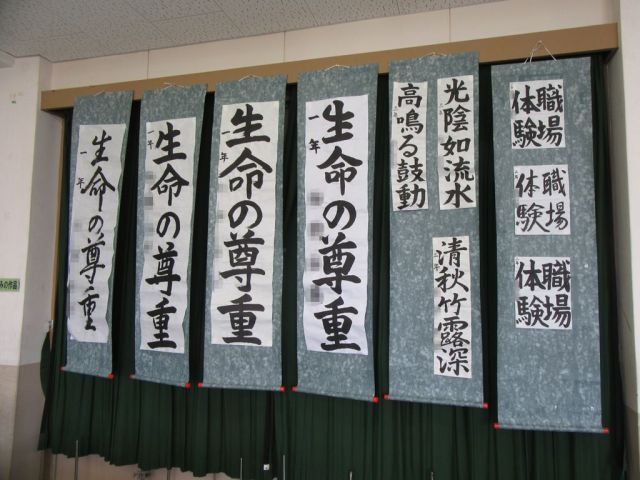 職場
体験
職場
体験
職場
体験
光陰如流水
高鳴る鼓動
清秋竹露深
生命の尊重
一年
生命の尊重
一年
生命の尊重
一年
生命の尊重
一年
みの作品